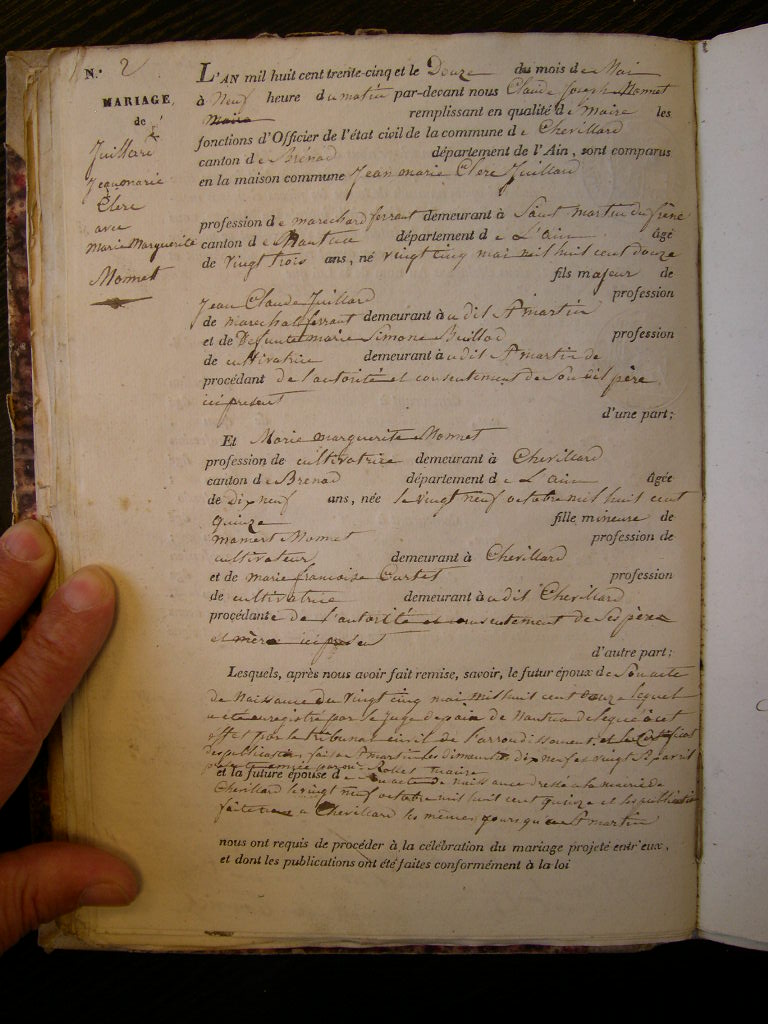 N.° 2
MARIAGE
de
Juillard
Jeanmarie
Clere
avec
Marie Marguerite
Monnet
L'AN mil huit cent trente-cinq et le Douze du mois de Mai
à Neuf heure du matin par-devant nous Claude Joseph Monnet
Maire remplissant en qualité de maire les
fonctions d'Officier de l'état civil de la commune de Chevillard
canton de Brénod département de l'Ain, sont comparus
en la maison commune Jean marie Clere Juillard
profession de marechard ferrant demeurant à Saint Martin du frêne
canton de Nantua département de L'ain âgé
de Vingt trois ans, né vingt cinq mai mil huit cent douze
fils majeur de
Jean Claude Juillard profession
de marechal ferrant demeurant à udit St martin
et de Defunte marie Simone profession
de cultivatrice demeurant à udit St martin de
procédant de l'autorité et consentement de Son dit père
ici présent
d'une part;
Et Marie marguerite Monnet
profession de cultivatrice demeurant à Chevillard
canton de Brenod département de L'ain âgée
de Dix neuf ans, née le vingt neuf octobre mil huit cent
quinze fille mineure de
mamert Monnet profession de
cultivateur demeurant à Chevillard
et de marie francoise Curtet profession
de cultivatrice demeurant à udit Chevillard
procédante de l'autorité et consentement de Ses père
et mère ici présent
d'autre part;
Lesquels, après nous avoir fait remise, savoir, le futur époux de Son acte
de Naissance du Vingt cinq mai mil huit cent douze lequel
a été enregistré par le juge de paix de Nantua
effet par le tribunal civil de l'arroudissement, et le Certificat
des publications faites a St martin Les dimanches dix neuf et vingt Six avril
et la future épouse de Son acte de naissance dressé a la mairie de
Chevillard le vingt neuf octobre mil huit cent quinze et les publications
faites a Chevillard les mêmes jours qu'a St martin
nous ont requis de procéder à la célébration du mariage projeté entr'eux,
et dont les publications ont été faites conformément à la loi